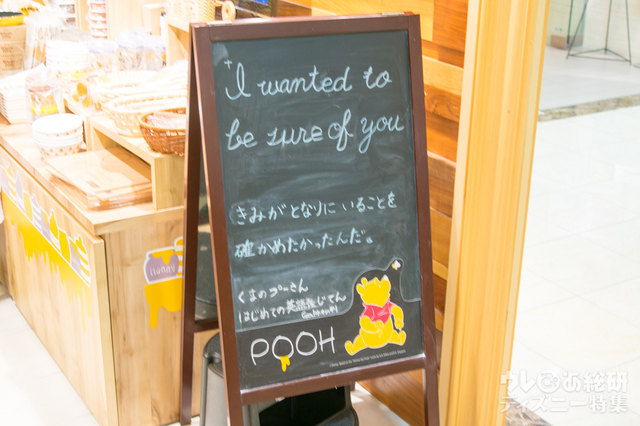 I wanted to
be sure of you
きみがとなりにいることを
確かめたかったんだ。
くまのプーさん
はじめての英語後じてん
POOH
Hunny
ウレぴあ総研
ディズニー特集